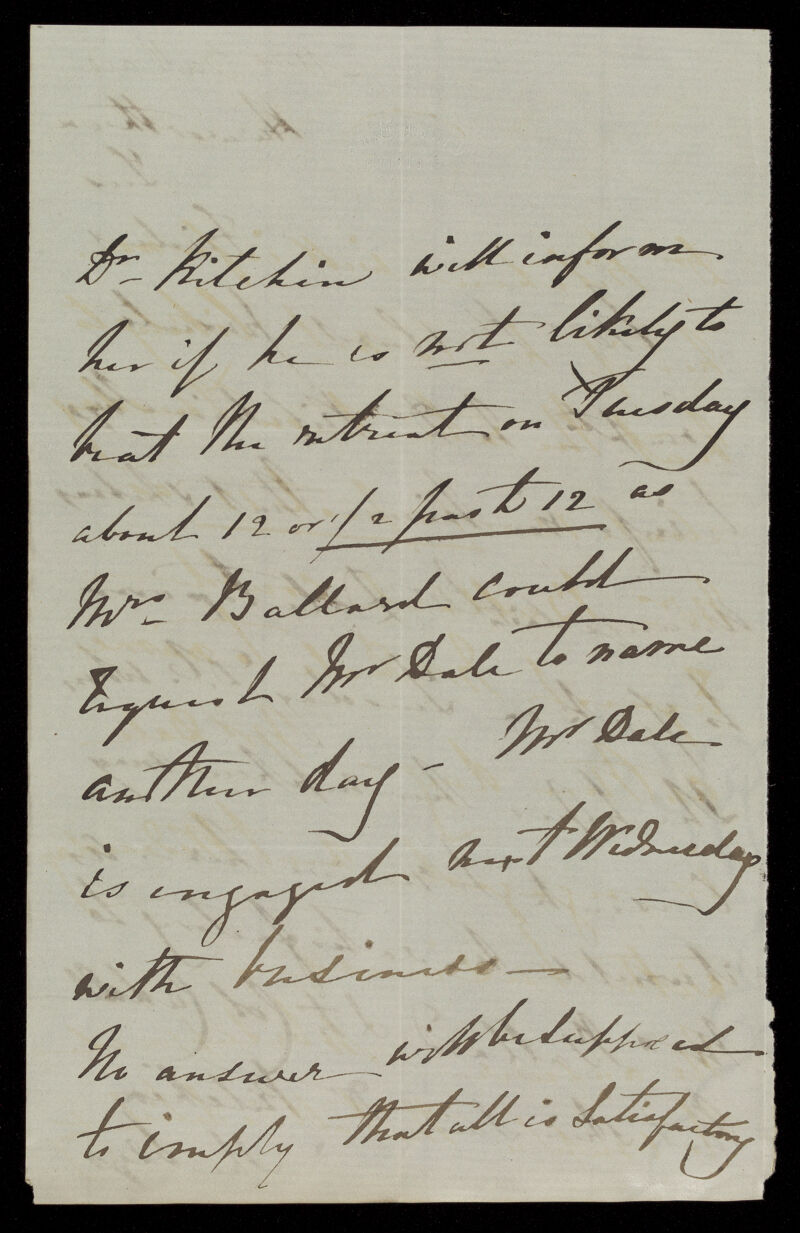 Dr Kitchin will inform
her if he is not likely to
be at the retreat on Tuesday
about 12 or 1/2 past 12 as
Mrs Ballard could
request Mr Dale to name
another day - Mr Dale
is engaged next Wednesday
with business -
No answer will be supposed
to imply that all is Satisfactory